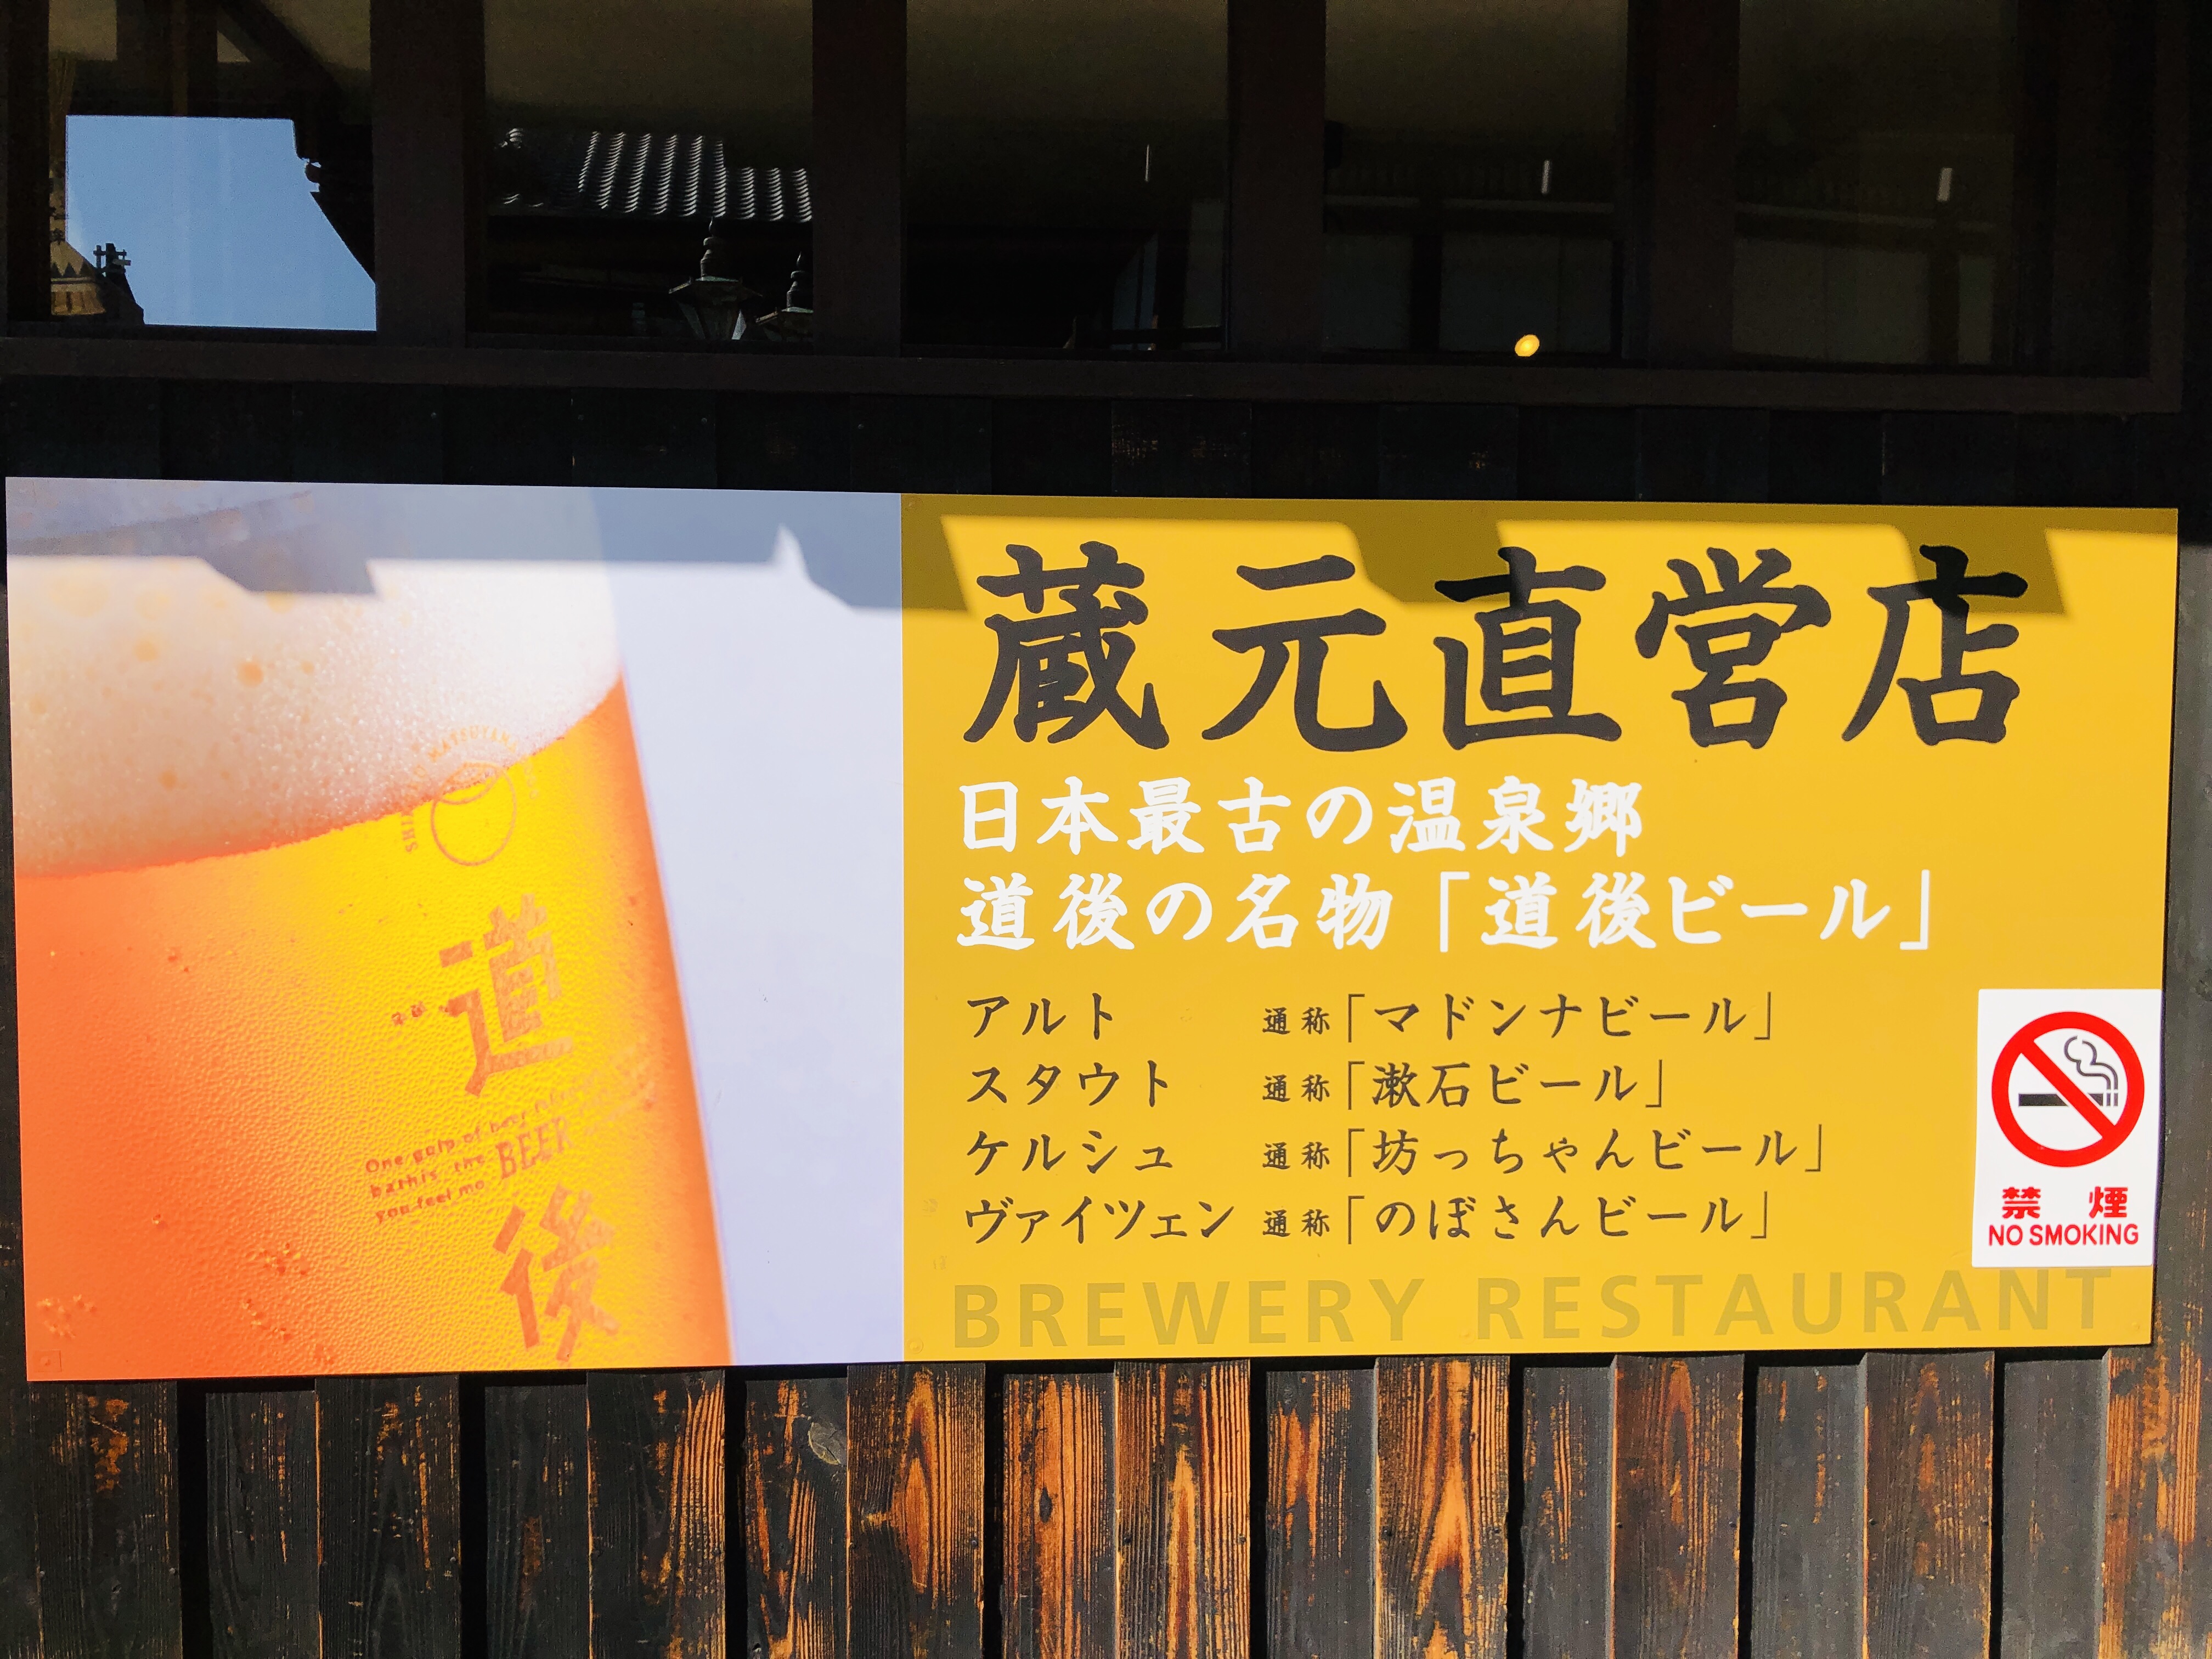 蔵元直営店
日本最古の温泉郷
道後の名物「道後ビール」
アルト 通称「マドンナビール」
スタウト 通称「漱石ビール」
ケルシュ 通称「坊っちゃんビール」
ヴァイツェン 通称「のぼさんビール」
BREWERY RESTAURANT
禁煙
NO SMOKING
MATSUYAMA
道
One gulp of
the BEER
you feel
後